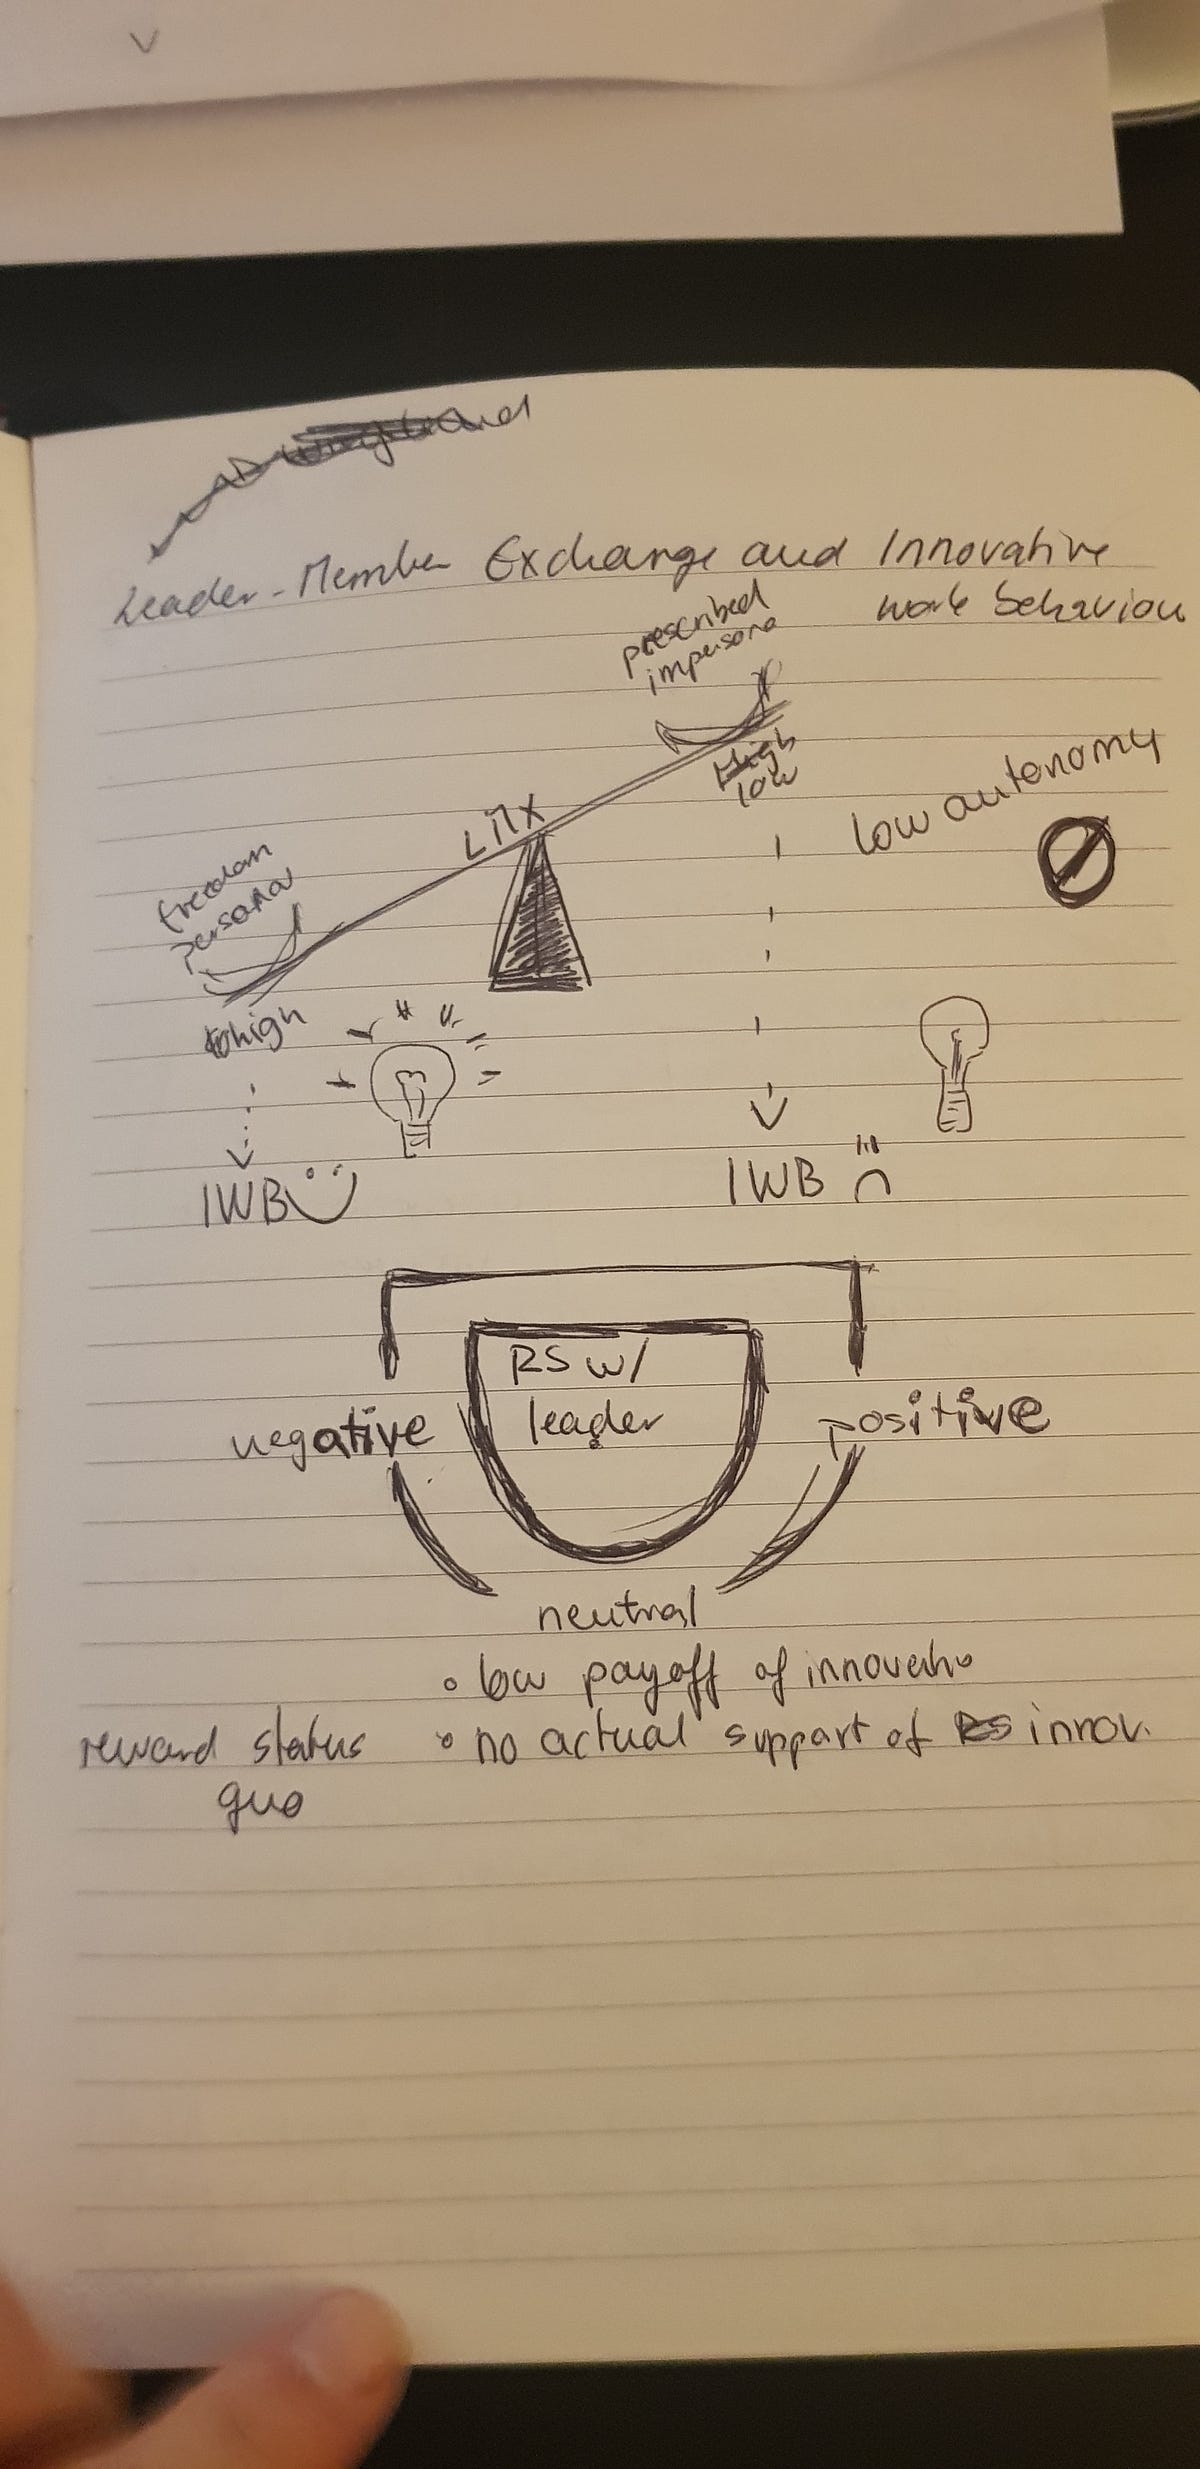 Leader-Member Exchange and Innovative
work behaviou
prescribed
impersona
High
low
LMX
low autonomy
freedom
persona
high
IWB
IWB
RS w/
leader
negative
positive
neutral
• low payoff of innovatio
reward status
quo
• no actual support of RS innov.